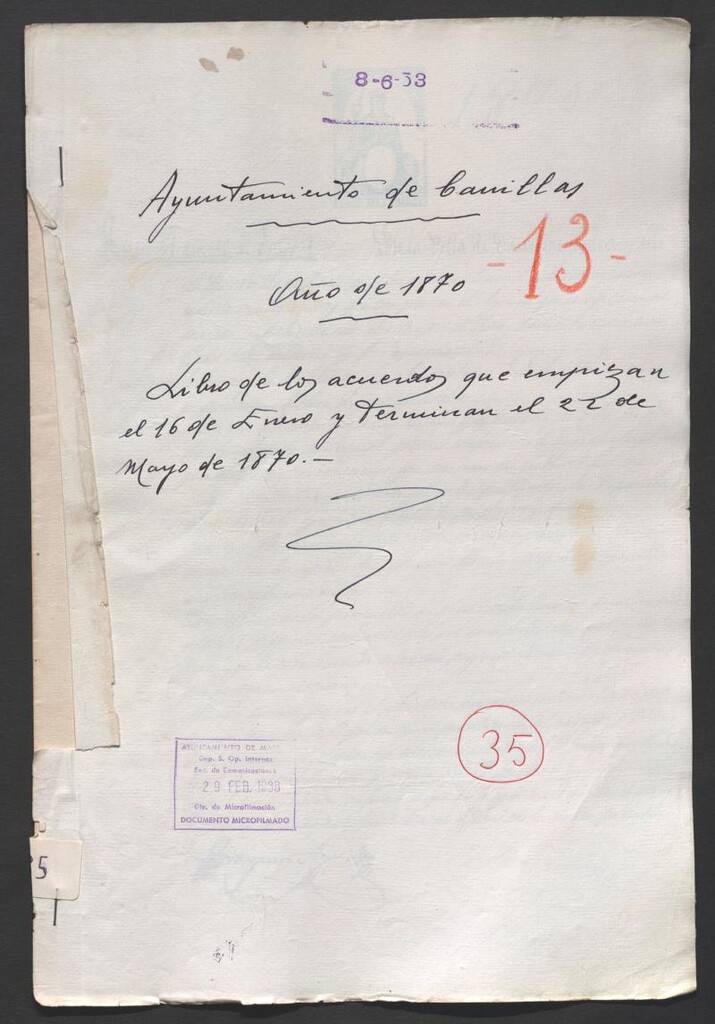 8-6-53
Ayuntamiento de Canillas
Año de 1870
-13-
Libro de los acuerdos que empiezan
el 16 de Enero y terminan el 22 de
Mayo de 1870.-
35
AYUNTAMIENTO DE
Dep. S. Op. Internos
Sec. de Comunicaciones
29 FEB. 1988
Ctr. de Microfilmación
DOCUMENTO MICROFILMADO
5